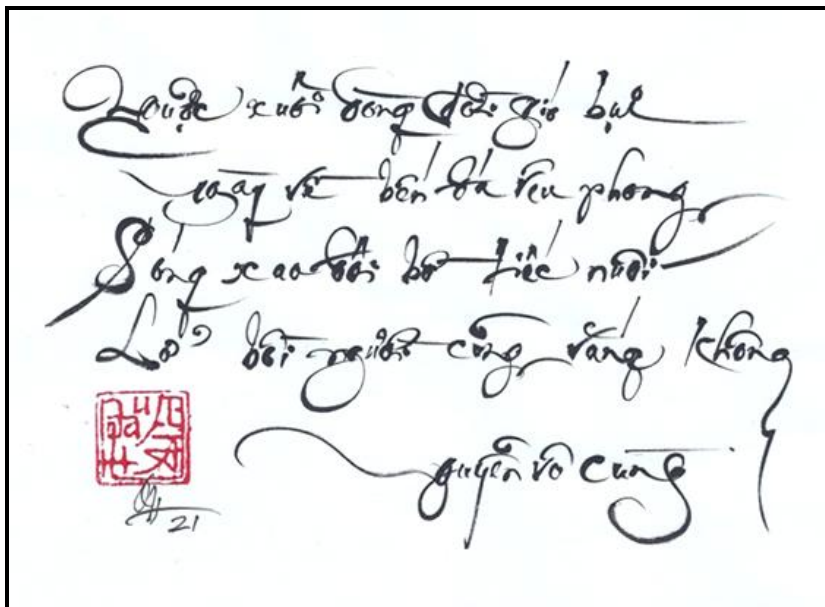 Ngược xuôi dòng đời gió bụi
Quay về bến đá rêu phong
Sóng xao đôi bờ tiếc nuối
Lở bồi người cũng vắng không
nguyễn vô cùng
21